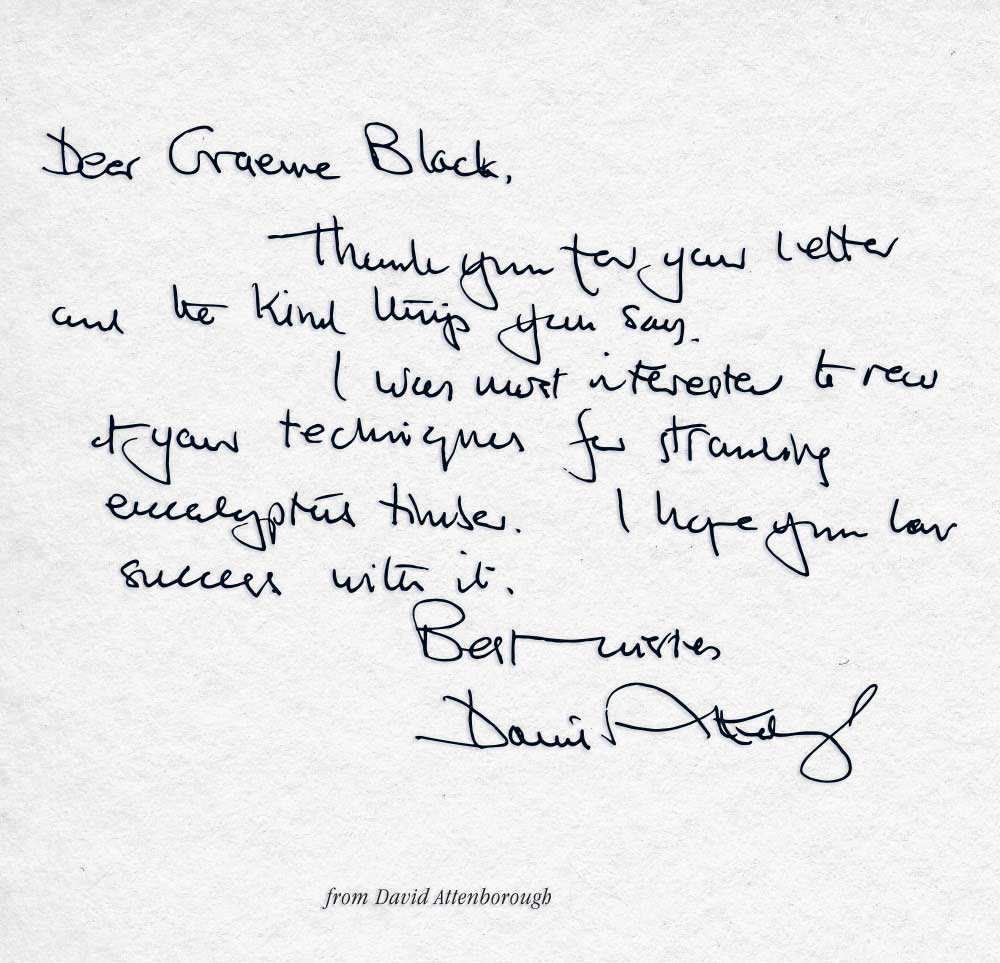 Dear Graeme Black,
Thank you for your letter
and the kind things you say.
I was most interested to read
of your techniques for
eucalyptus timber. I hope you have
success with it.
Best wishes
David Attenborough
from David Attenborough